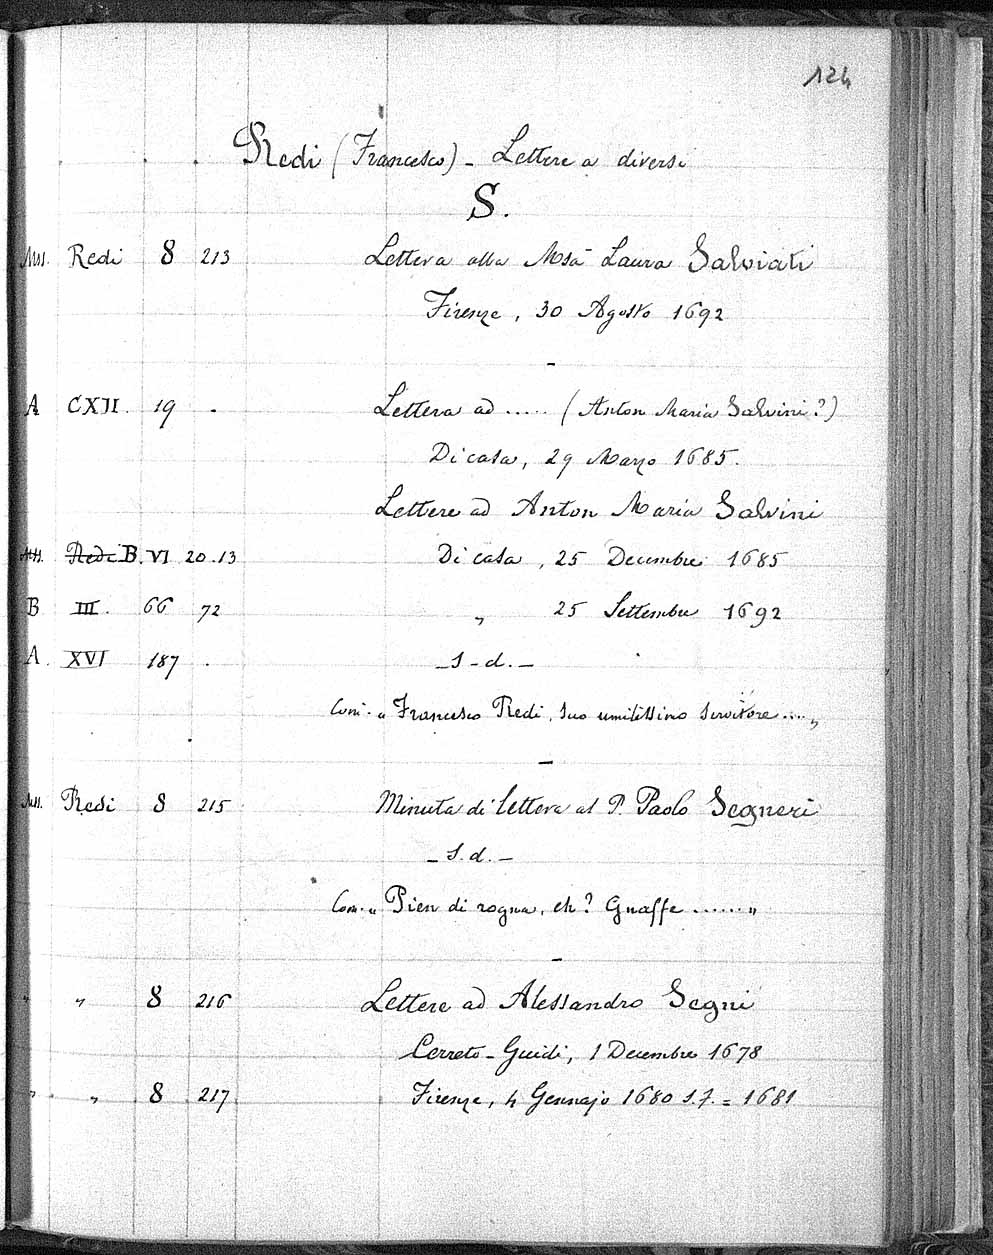 124
Redi (Francesco) - Lettere a diversi
S.
Mss. Redi 8 213 Lettera alla Msa Laura Salviati
Firenze, 30 Agosto 1692
-
A CXII. 19 . Lettera ad ..... (Anton Maria Salvini?)
Di casa, 29 Marzo 1685.
Lettere ad Anton Maria Salvini
Mss. Redi B. VI 20.13 Di casa, 25 Decembre 1685
B III. 66 72 „ 25 Settembre 1692
A. XVI 187 . - s-d. -
Com. „ Francesco Redi, suo umilissimo servitore .... „
-
Mss. Redi 8 215 Minuta di lettera al P. Paolo Segneri
- s.d. -
Com. „ Pien di rogna, eh? Gnaffe ...... „
-
„ „ 8 216 Lettere ad Alessandro Segni
Cerreto-Guidi, 1 Decembre 1678
„ „ 8 217 Firenze, 4 Gennajo 1680 s.f. = 1681